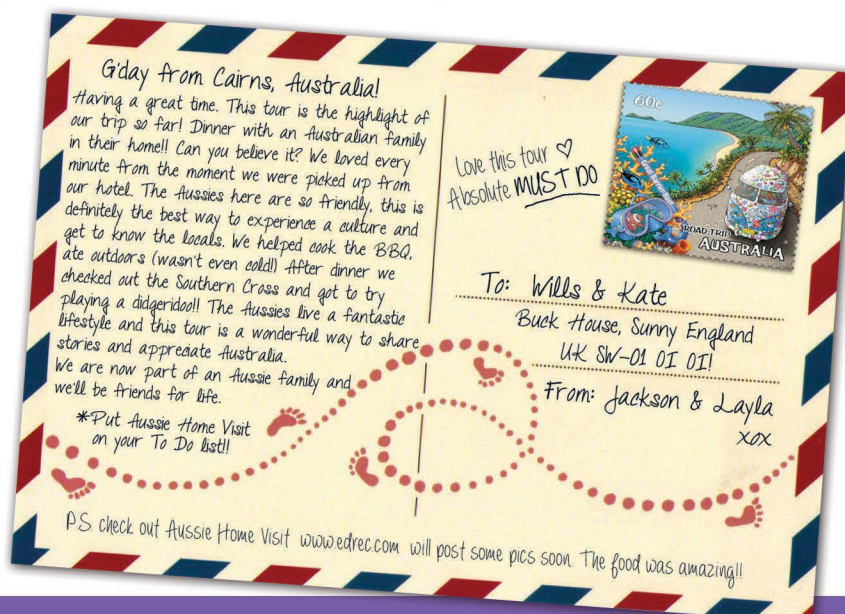 G'day from Cairns, Australia!
Having a great time. This tour is the highlight of
our trip so far! Dinner with an Australian family
in their home!! Can you believe it? We loved every
minute from the moment we were picked up from
our hotel. The Aussies here are so friendly, this is
definitely the best way to experience a culture and
get to know the locals. We helped cook the BBQ,
ate outdoors (wasn't even cold!) After dinner we
checked out the Southern Cross and got to try
playing a didgeridoo!! The Aussies live a fantastic
lifestyle and this tour is a wonderful way to share
stories and appreciate Australia.
We are now part of an Aussie family and
we'll be friends for life.
*Put Aussie Home Visit
on your To Do list!!
Love this tour ♡
Absolute MUST DO
60c
ROAD TRIP
AUSTRALIA
To: Wills & Kate
Buck House, Sunny England
UK SW-01 OI OI!
From: Jackson & Layla
xox
P.S. check out Aussie Home Visit www.edrec.com will post some pics soon. The food was amazing!!